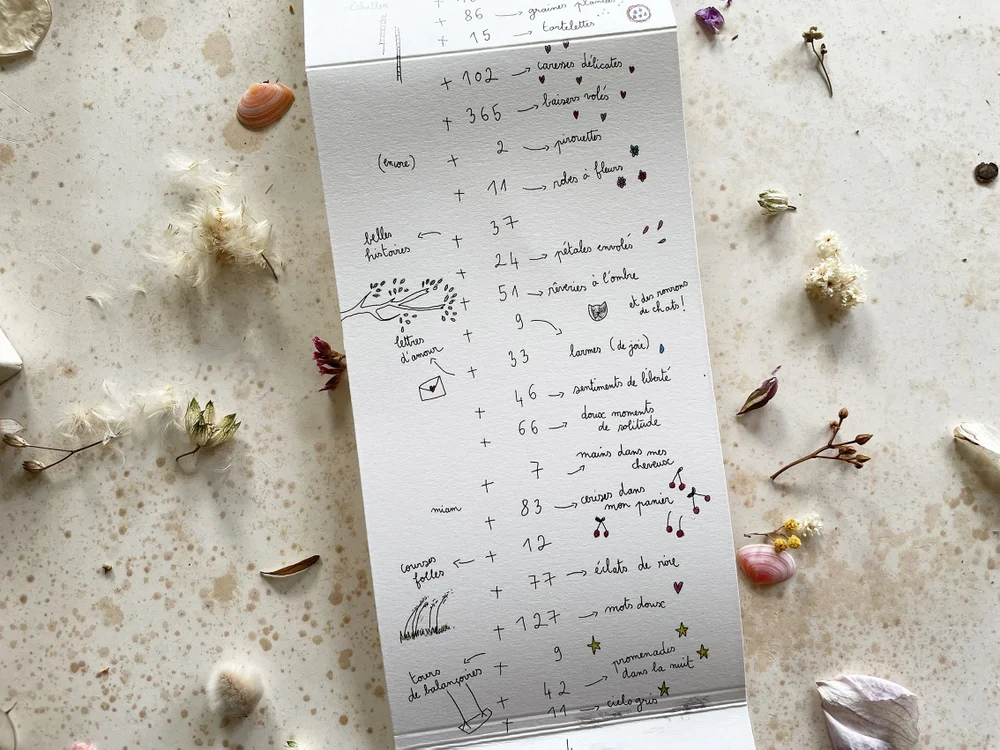 échelles
+ 86 → graines plantées
+ 15 → tartelettes
+ 102 → caresses délicates
+ 365 → baisers volés
(encore) + 2 → pirouettes
+ 11 → robes à fleurs
belles histoires ← + 37
+ 24 → pétales envolés
+ 51 → rêveries à l'ombre
et des ronrons
de chats !
+ 9
lettres
d'amour
+ 33 larmes (de joie)
+ 46 → sentiments de liberté
+ 66 → doux moments
de solitude
+ 7 → mains dans mes
cheveux
miam + 83 → cerises dans
mon panier
courses
folles ← + 12
+ 77 → éclats de rire
+ 127 → mots doux
tours
de balançoires ← + 9
+ 42 → promenades
dans la nuit
+ 11 → ciels gris